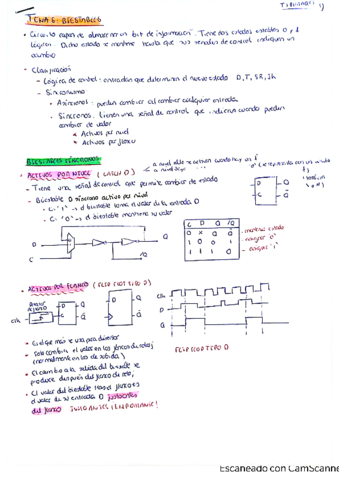 TEMA 6: BIESTABLES
Circuito capaz de almacenar un bit de información. Tiene dos estados estables 0 y 1
lógicos. Dicho estado se mantiene hasta que las señales de control indiquen un
cambio
- Clasificación
- Lógica de control: entradas que determinan el nuevo estado D, T, SR, Jk
- Sincronismo
Asíncronos: pueden cambiar al cambiar cualquier entrada.
Síncronos: tienen una señal de control que indica cuando pueden
cambiar de valor
Activos por nivel
Activos por flanco
BIESTABLES SÍNCRONOS
ACTIVOS POR NIVEL (LATCH D)
- Tiene una señal de control que permite cambiar de estado
- Biestable D síncrono activo por nivel
C = "1" → el biestable toma el valor de la entrada D
C = "0" → el biestable mantiene su valor
D
C
Q
C D Q /Q
0 X Q Q
1 0 0 1
1 1 1 0
mantiene estado
cargar "0"
cargar "1"
ACTIVOS POR FLANCO (FLIP FLOP TIPO D)
D
Q
Clk
Clk
D
Q
FLIP FLOP TIPO D
Solo cambia el valor en los flancos de reloj
(normalmente en los de subida)
El cambio a la salida del biestable se
produce después del flanco de reloj
El valor del biestable tras el flanco es
el valor de su entrada D justo antes
del flanco
Escaneado con CamScanne